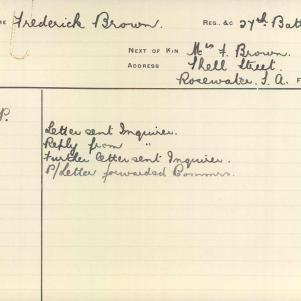 Frederick Brown. REG. &C 27th Batt
NEXT OF KIN Mrs F. Brown.
ADDRESS Shell Street.
Rosewater. S.A. F
P.
Letter sent Inquirer.
Reply from "
Further letter sent Inquirer.
P/Letter forwarded Commrs.